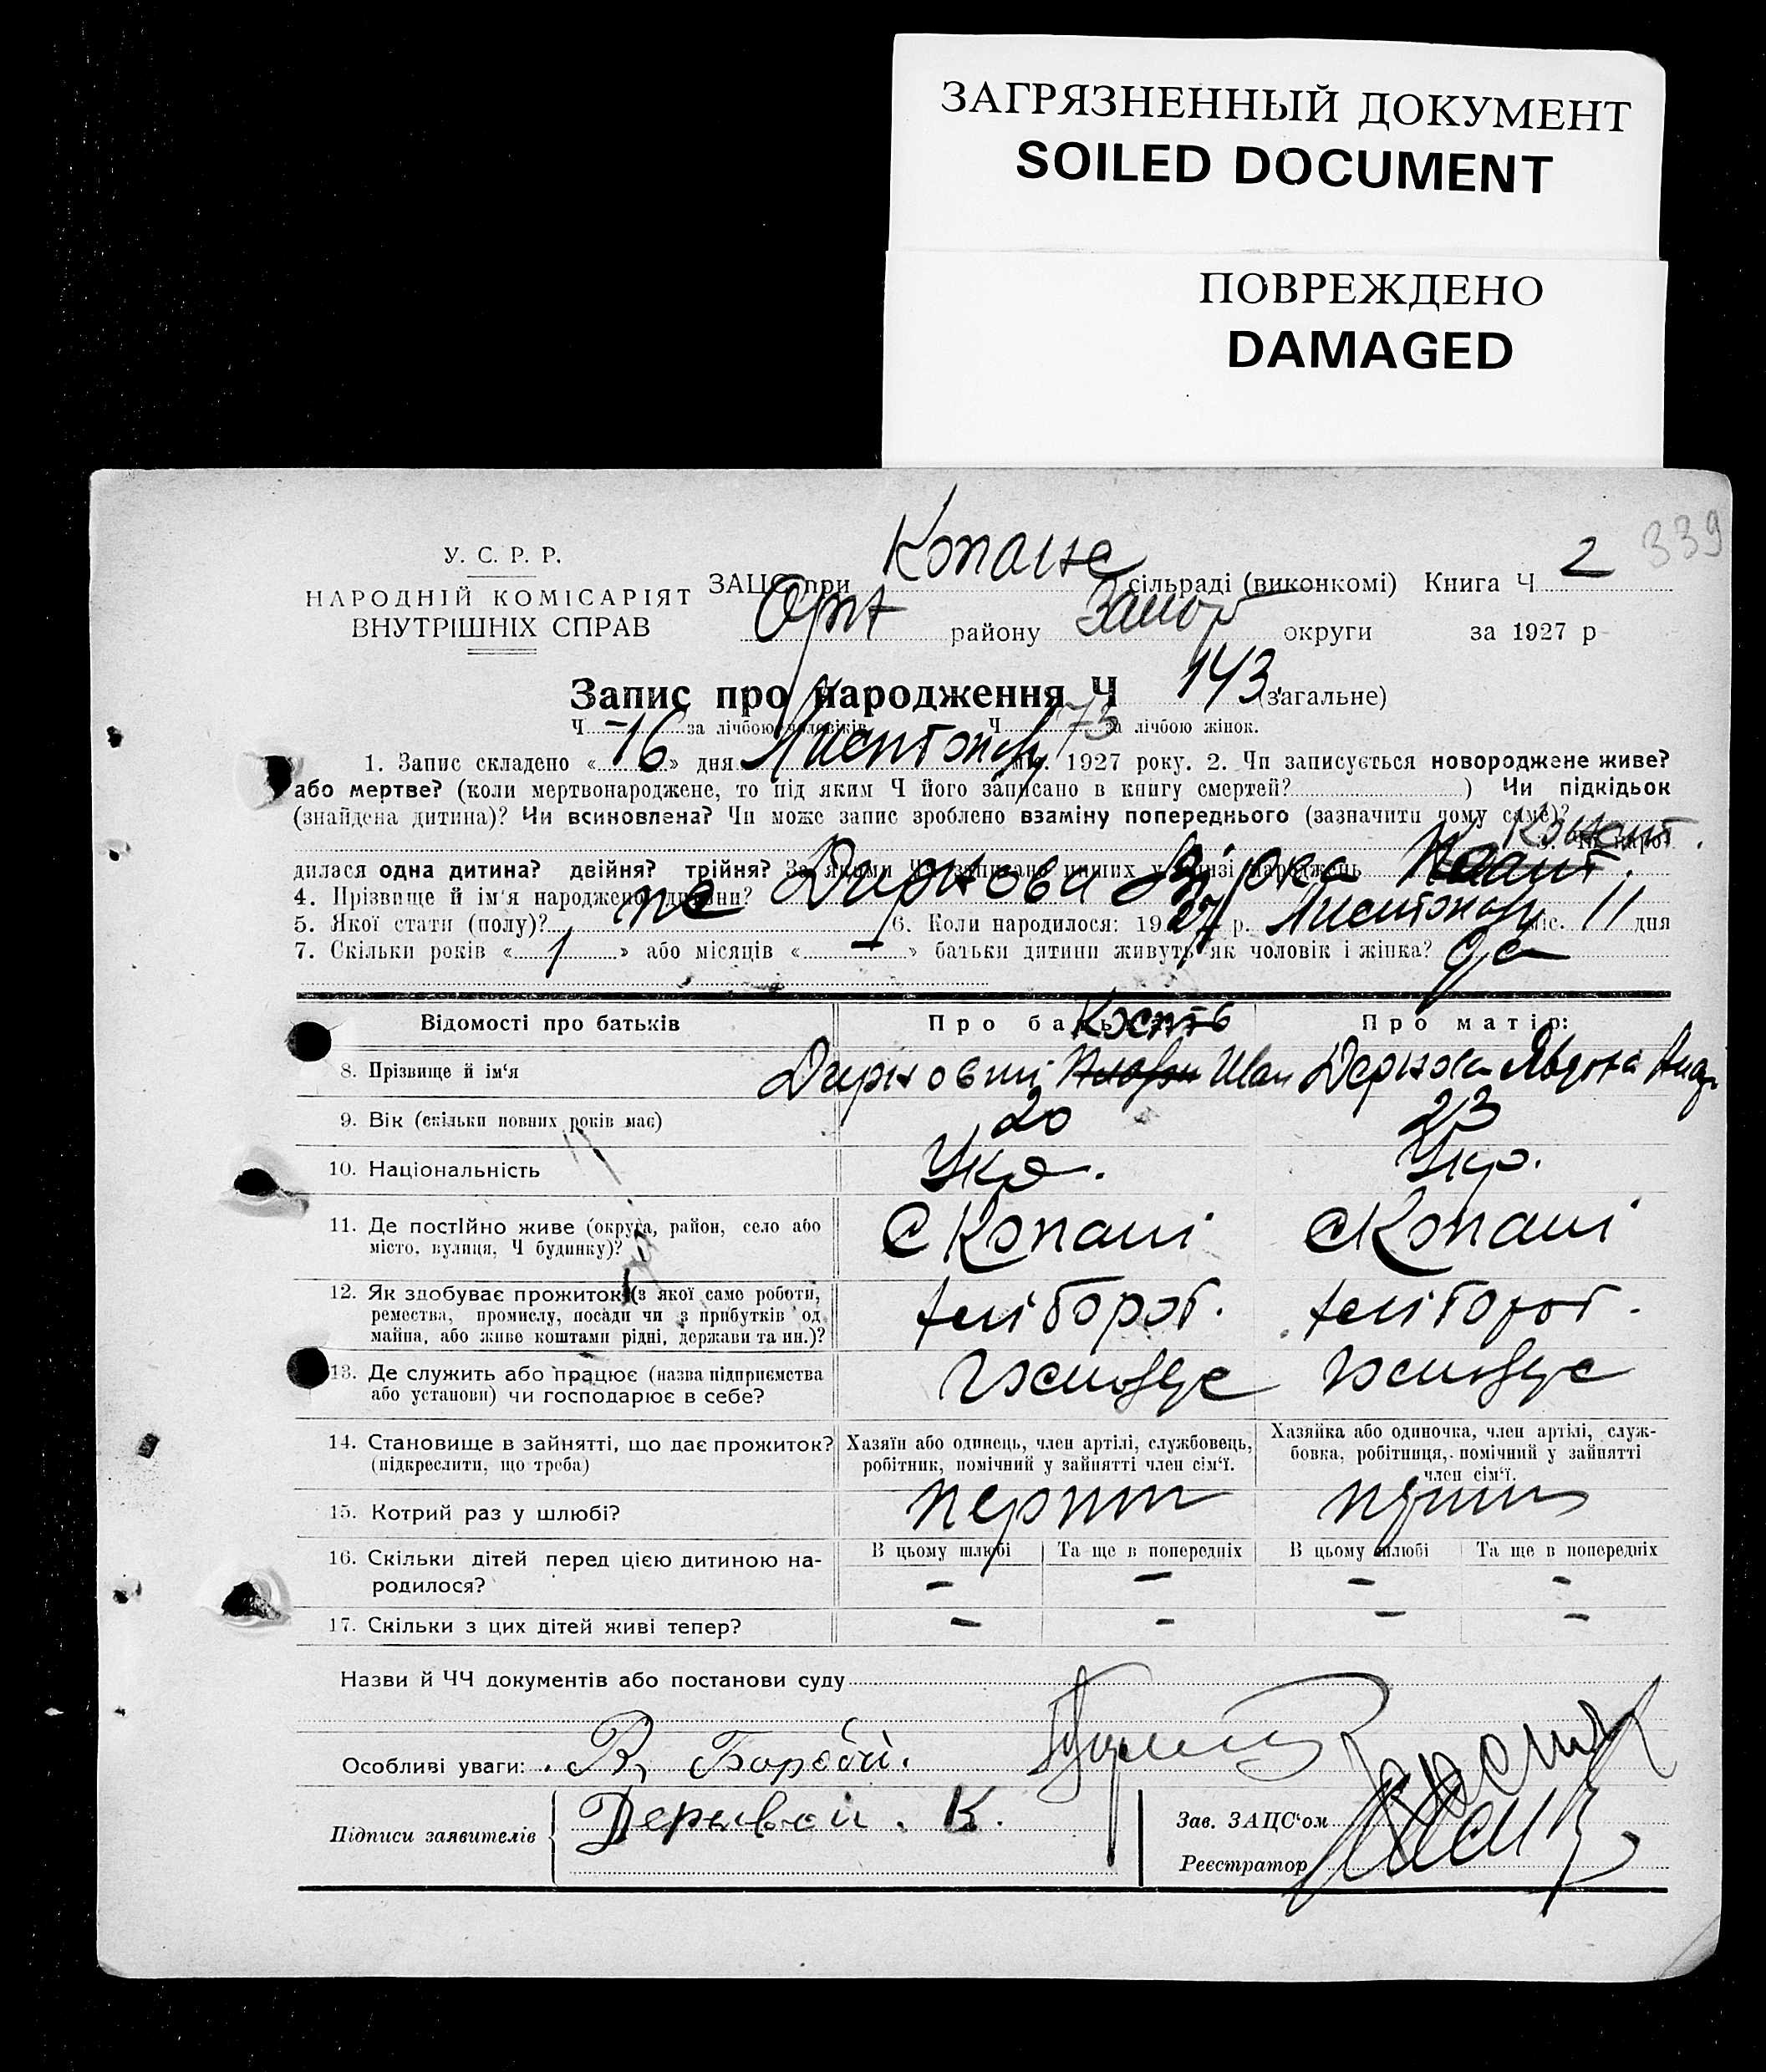 ЗАГРЯЗНЕННЫЙ ДОКУМЕНТ
SOILED DOCUMENT
ПОВРЕЖДЕНО
DAMAGED
339
У. С. Р. Р.
НАРОДНІЙ КОМІСАРІЯТ
ВНУТРІШНІХ СПРАВ
ЗАЦС при Копане сільраді (виконкомі) Книга Ч 2
Оріх району Запор округи за 1927 р
Запис про народження Ч 143 (загальне)
Ч — за лічбою чоловіків Ч 73 за лічбою жінок.
1. Запис складено « 16 » дня Листопаду міс. 1927 року. 2. Чи записується новороджене живе?
або мертве? (коли мертвонароджене, то під яким Ч його записано в книгу смертей? ) Чи підкідьок
(знайдена дитина)? Чи всиновлена? Чи може запис зроблено взаміну попереднього (зазначити чому саме)?
3. Чи наро-
дилася одна дитина? двійня? трійня? За якими ЧЧ записано инших у книзі народжень
4. Прізвище й ім'я народженої дитини? Держова Вірка Конст.
5. Якої стати (полу)? же 6. Коли народилося: 1927 р. Листопаду міс. 11 дня
7. Скільки років « 1 » або місяців « — » батьки дитини живуть як чоловік і жінка? да
Відомості про батьків Про батька Про матір:
Кость
8. Прізвище й ім'я Держовий Іван Держова Явдоха Анд.
9. Вік (скільки повних років має) 20 23
10. Національність Укр. Укр.
11. Де постійно живе (округа, район, село або С Копані с Копані
місто, вулиця, Ч будинку)?
12. Як здобуває прожиток (з якої само роботи,
ремества, промислу, посади чи з прибутків од
майна, або живе коштами рідні, держави та ин.)?
13. Де служить або працює (назва підприємства
або установи) чи господарює в себе?
14. Становище в зайнятті, що дає прожиток? Хазяїн або одинець, член артілі, службовець, Хазяйка або одиночка, член артілі, служ-
(підкреслити, що треба) робітник, помічний у зайнятті член сім'ї. бовка, робітниця, помічний у зайнятті
член сім'ї.
15. Котрий раз у шлюбі? перший
16. Скільки дітей перед цією дитиною на- В цьому шлюбі Та ще в попередніх В цьому шлюбі Та ще в попередніх
родилося? — — — —
17. Скільки з цих дітей живі тепер? — — — —
Назви й ЧЧ документів або постанови суду
Особливі уваги:
Підписи заявителів К.
Зав. ЗАЦС'ом
Реєстратор